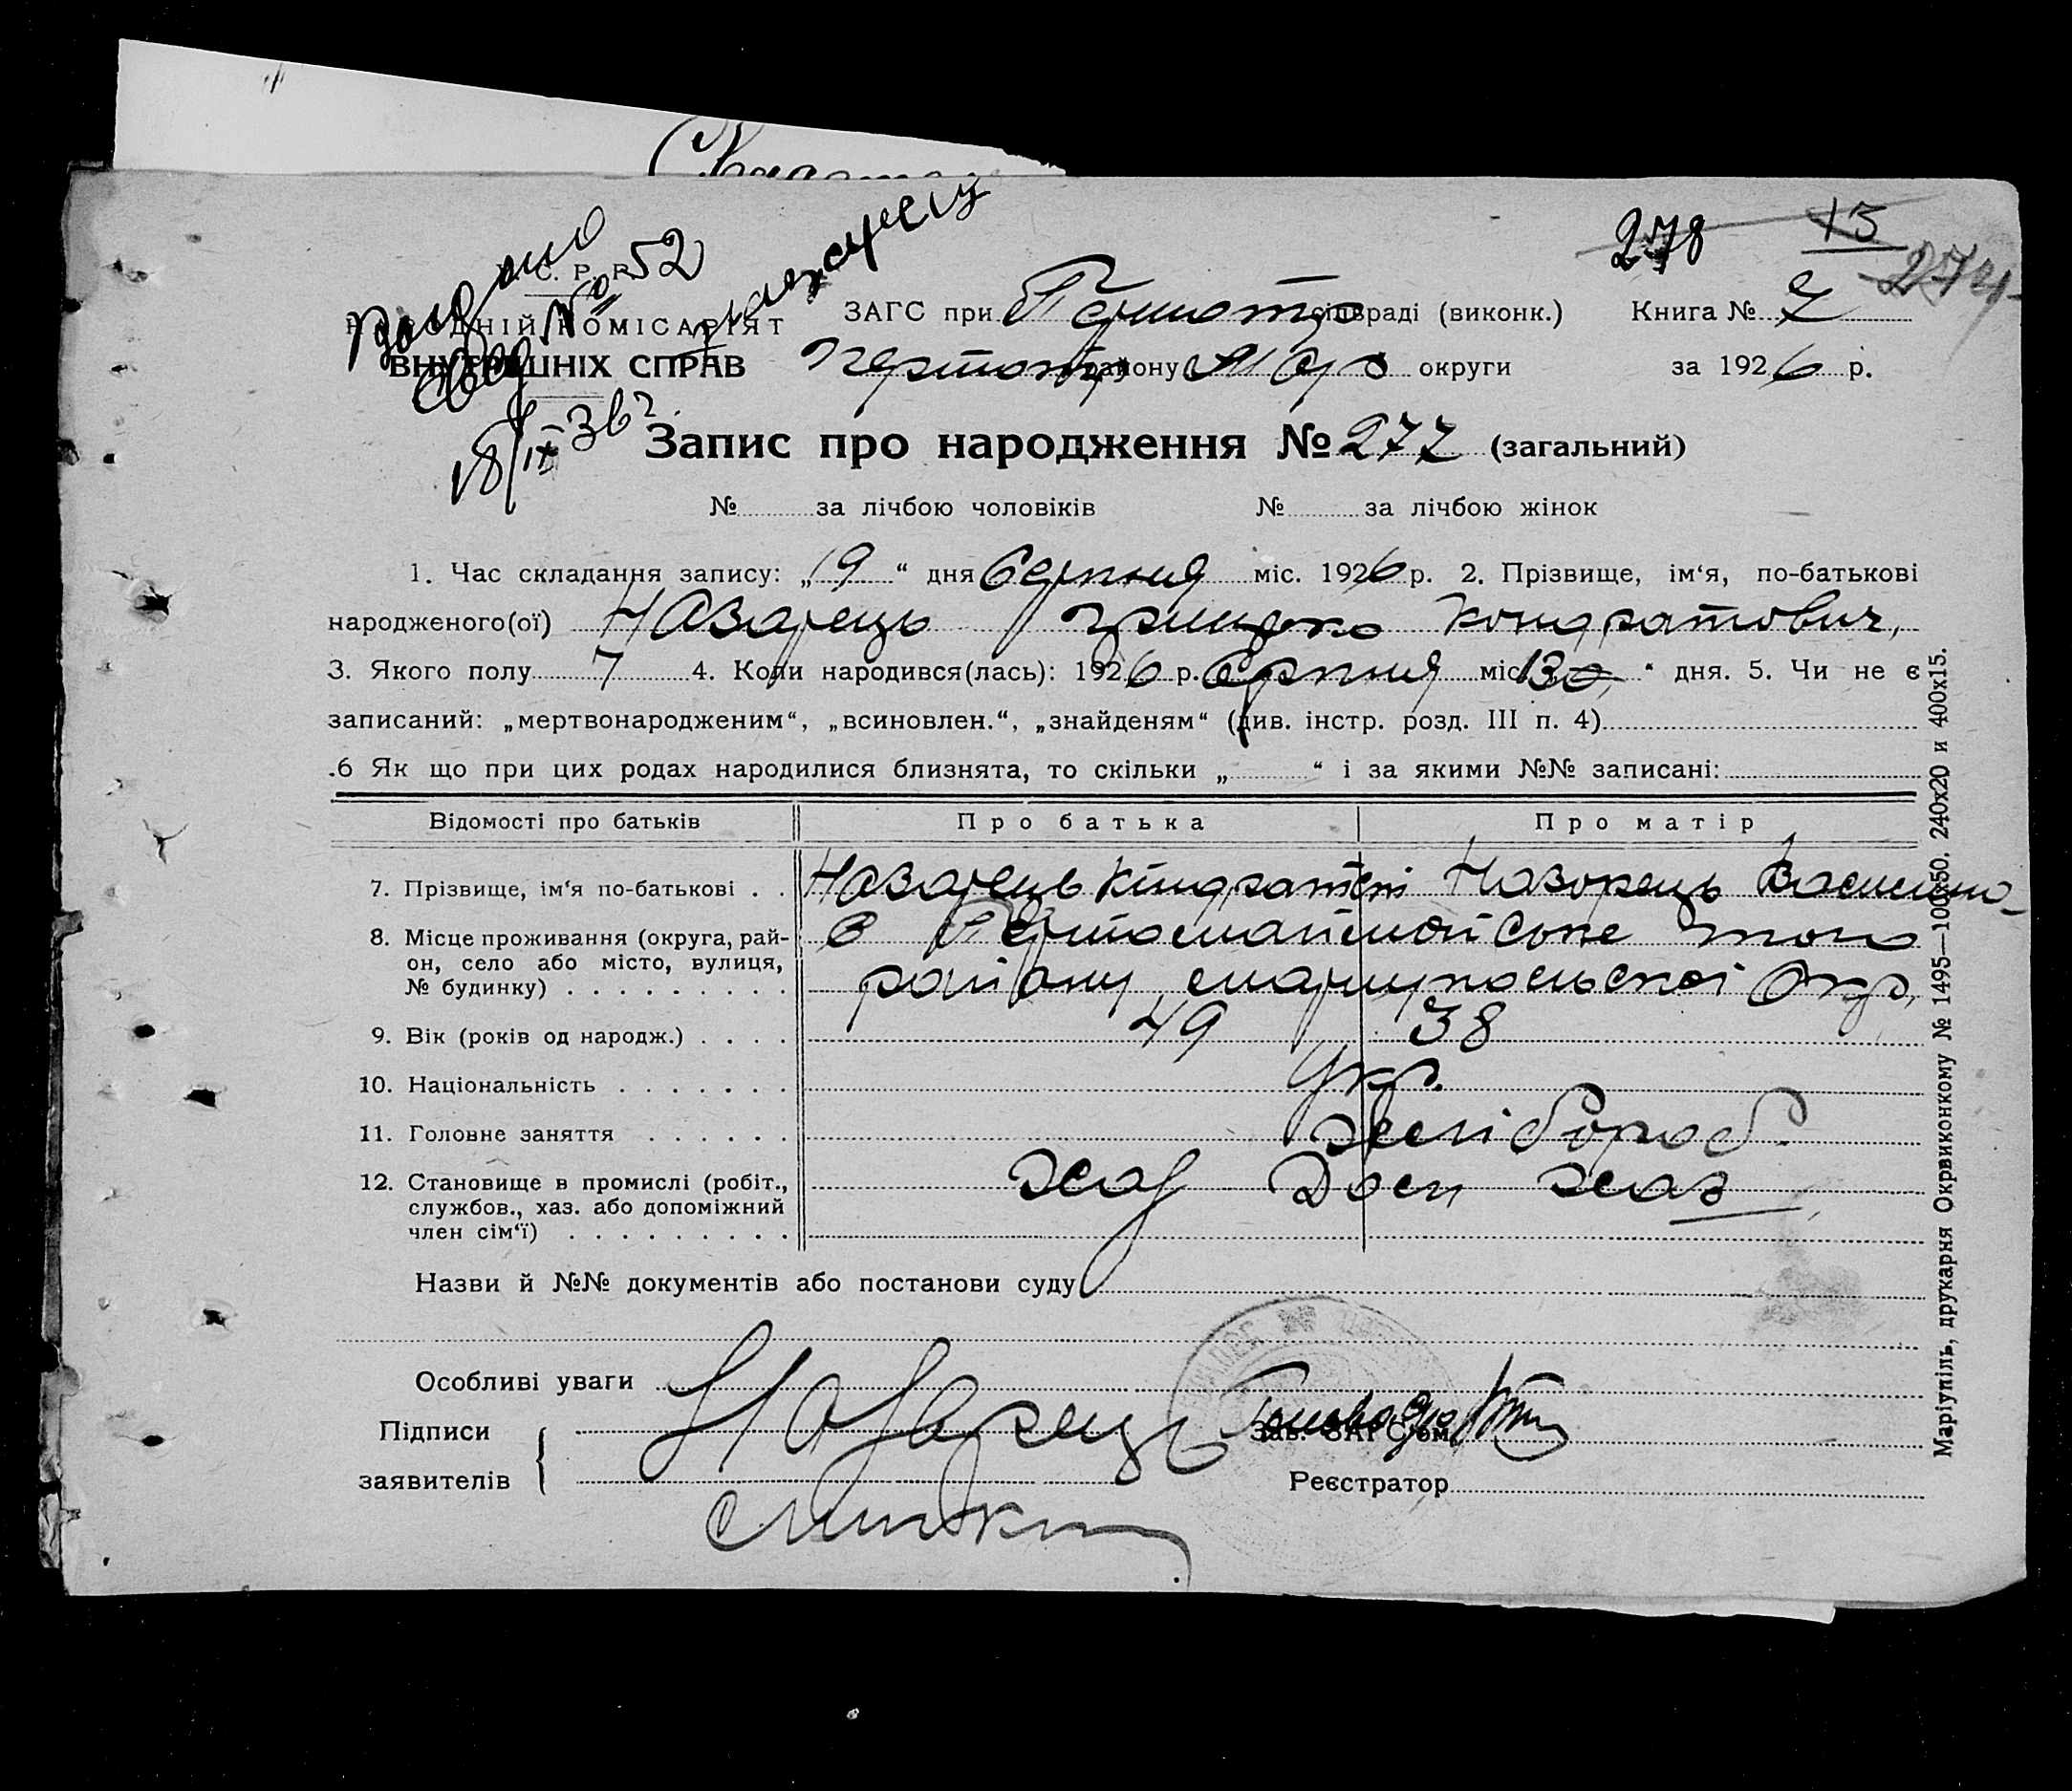 278 15
274
Видано
свед № 52
18/IX 36 г.
У. С. Р. Р.
НАРОДНІЙ КОМІСАРІЯТ
ВНУТРІШНІХ СПРАВ
ЗАГС при сільраді (виконк.) Книга № 7
району Мар округи за 1926 р.
Запис про народження № 277 (загальний)
№ за лічбою чоловіків № за лічбою жінок
1. Час складання запису: „19“ дня Серпня міс. 1926 р. 2. Прізвище, ім‘я, по-батькові
народженого(ої) Назарець Грицько Кондратович,
3. Якого полу Ч 4. Коли народився(лась): 1926 р. Серпня міс. 13 “ дня. 5. Чи не є
записаний: „мертвонародженим“, „всиновлен.“, „знайденям“ (див. інстр. розд. III п. 4)
.6 Як що при цих родах народилися близнята, то скільки „ “ і за якими №№ записані:
Відомості про батьків Про батька Про матір
7. Прізвище, ім‘я по-батькові . . Назарець Кіндрат Назорець
8. Місце проживання (округа, рай-
он, село або місто, вулиця,
№ будинку) . . . . . . . . . того
району, Мариупольскоі Окр,
9. Вік (років од народж.) . . . . 49 38
10. Національність . . . . . . . Укр.
11. Головне заняття . . . . . . Хлібороб.
12. Становище в промислі (робіт.,
службов., хаз. або допоміжний
член сім‘ї) . . . . . . . . . хаз
Назви й №№ документів або постанови суду
Особливі уваги
Підписи Назарець Зав. ЗАГС‘ом
заявителів Реєстратор
Маріупіль, друкарня Окрвиконкому № 1495—100х50. 240х20 и 400х15.